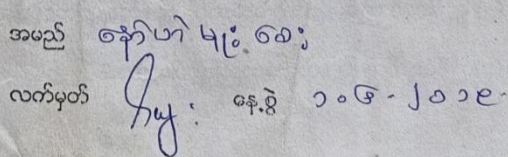 အမည် နော်ဟဲ မျိုး ဝေး
လက်မှတ် နေ့စွဲ ၁၀-၆-၂၀၁၉